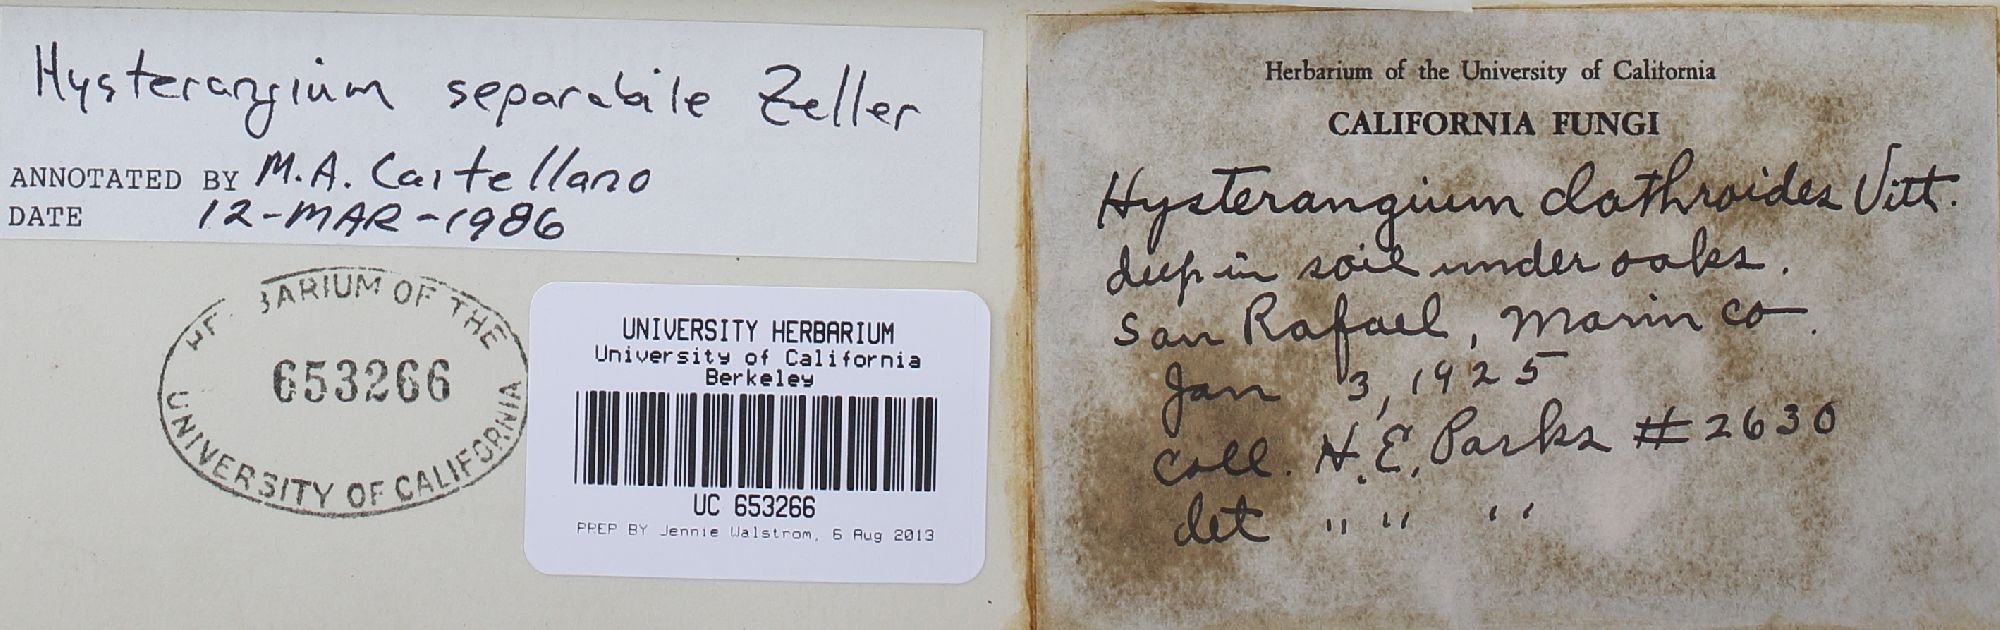 Hysterangium separabile Zeller
ANNOTATED BY M.A. Castellano
DATE 12-MAR-1986
HERBARIUM OF THE
653266
UNIVERSITY OF CALIFORNIA
UNIVERSITY HERBARIUM
University of California
Berkeley
UC 653266
PREP BY Jennie Walstrom, 6 Aug 2013
Herbarium of the University of California
CALIFORNIA FUNGI
Hysterangium clathroides Vitt.
deep in soil under oaks.
San Rafael, Marin Co.
Jan 3, 1925
Coll. H.E. Parks #2630
det " " " "